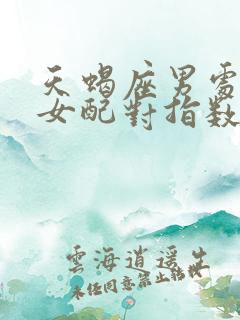 天蝎座男處
女配對指数
雲海逍遥生
未经同意禁止转载